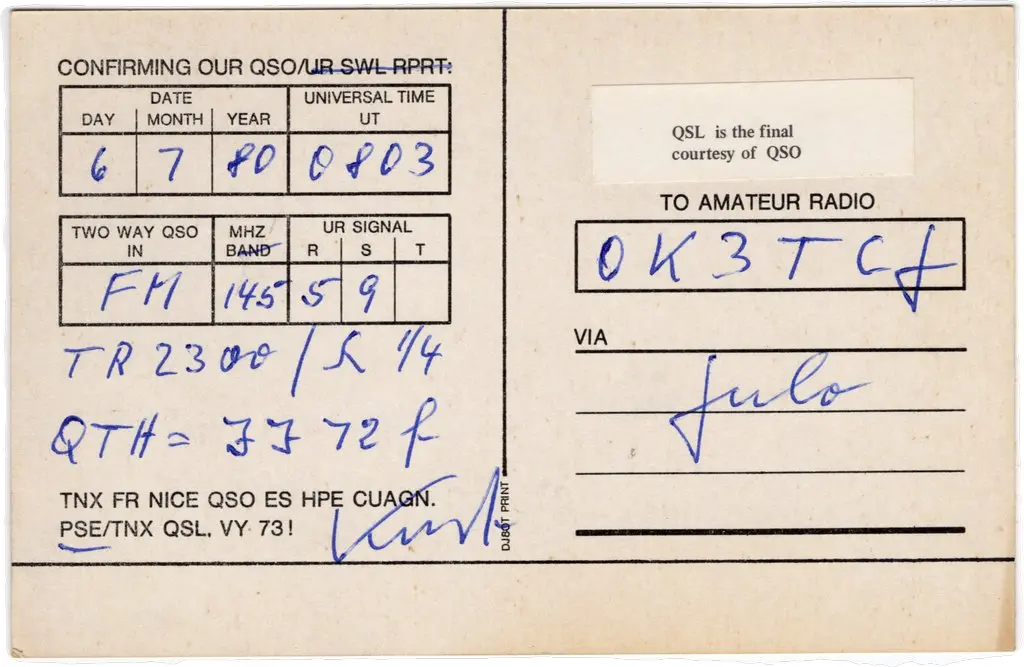 CONFIRMING OUR QSO/UR SWL RPRT:
DATE
DAY MONTH YEAR
UNIVERSAL TIME
UT
6 7 80 0803
TWO WAY QSO
IN
MHZ
BAND
UR SIGNAL
R S T
FM 145 5 9
TR 2300 / 1/4
QTH =  72 f
TNX FR NICE QSO ES HPE CUAGN.
PSE/TNX QSL, VY 73!
Kurt
DJ8OT PRINT
QSL is the final
courtesy of QSO
TO AMATEUR RADIO
OK3TCJ
VIA
Julo